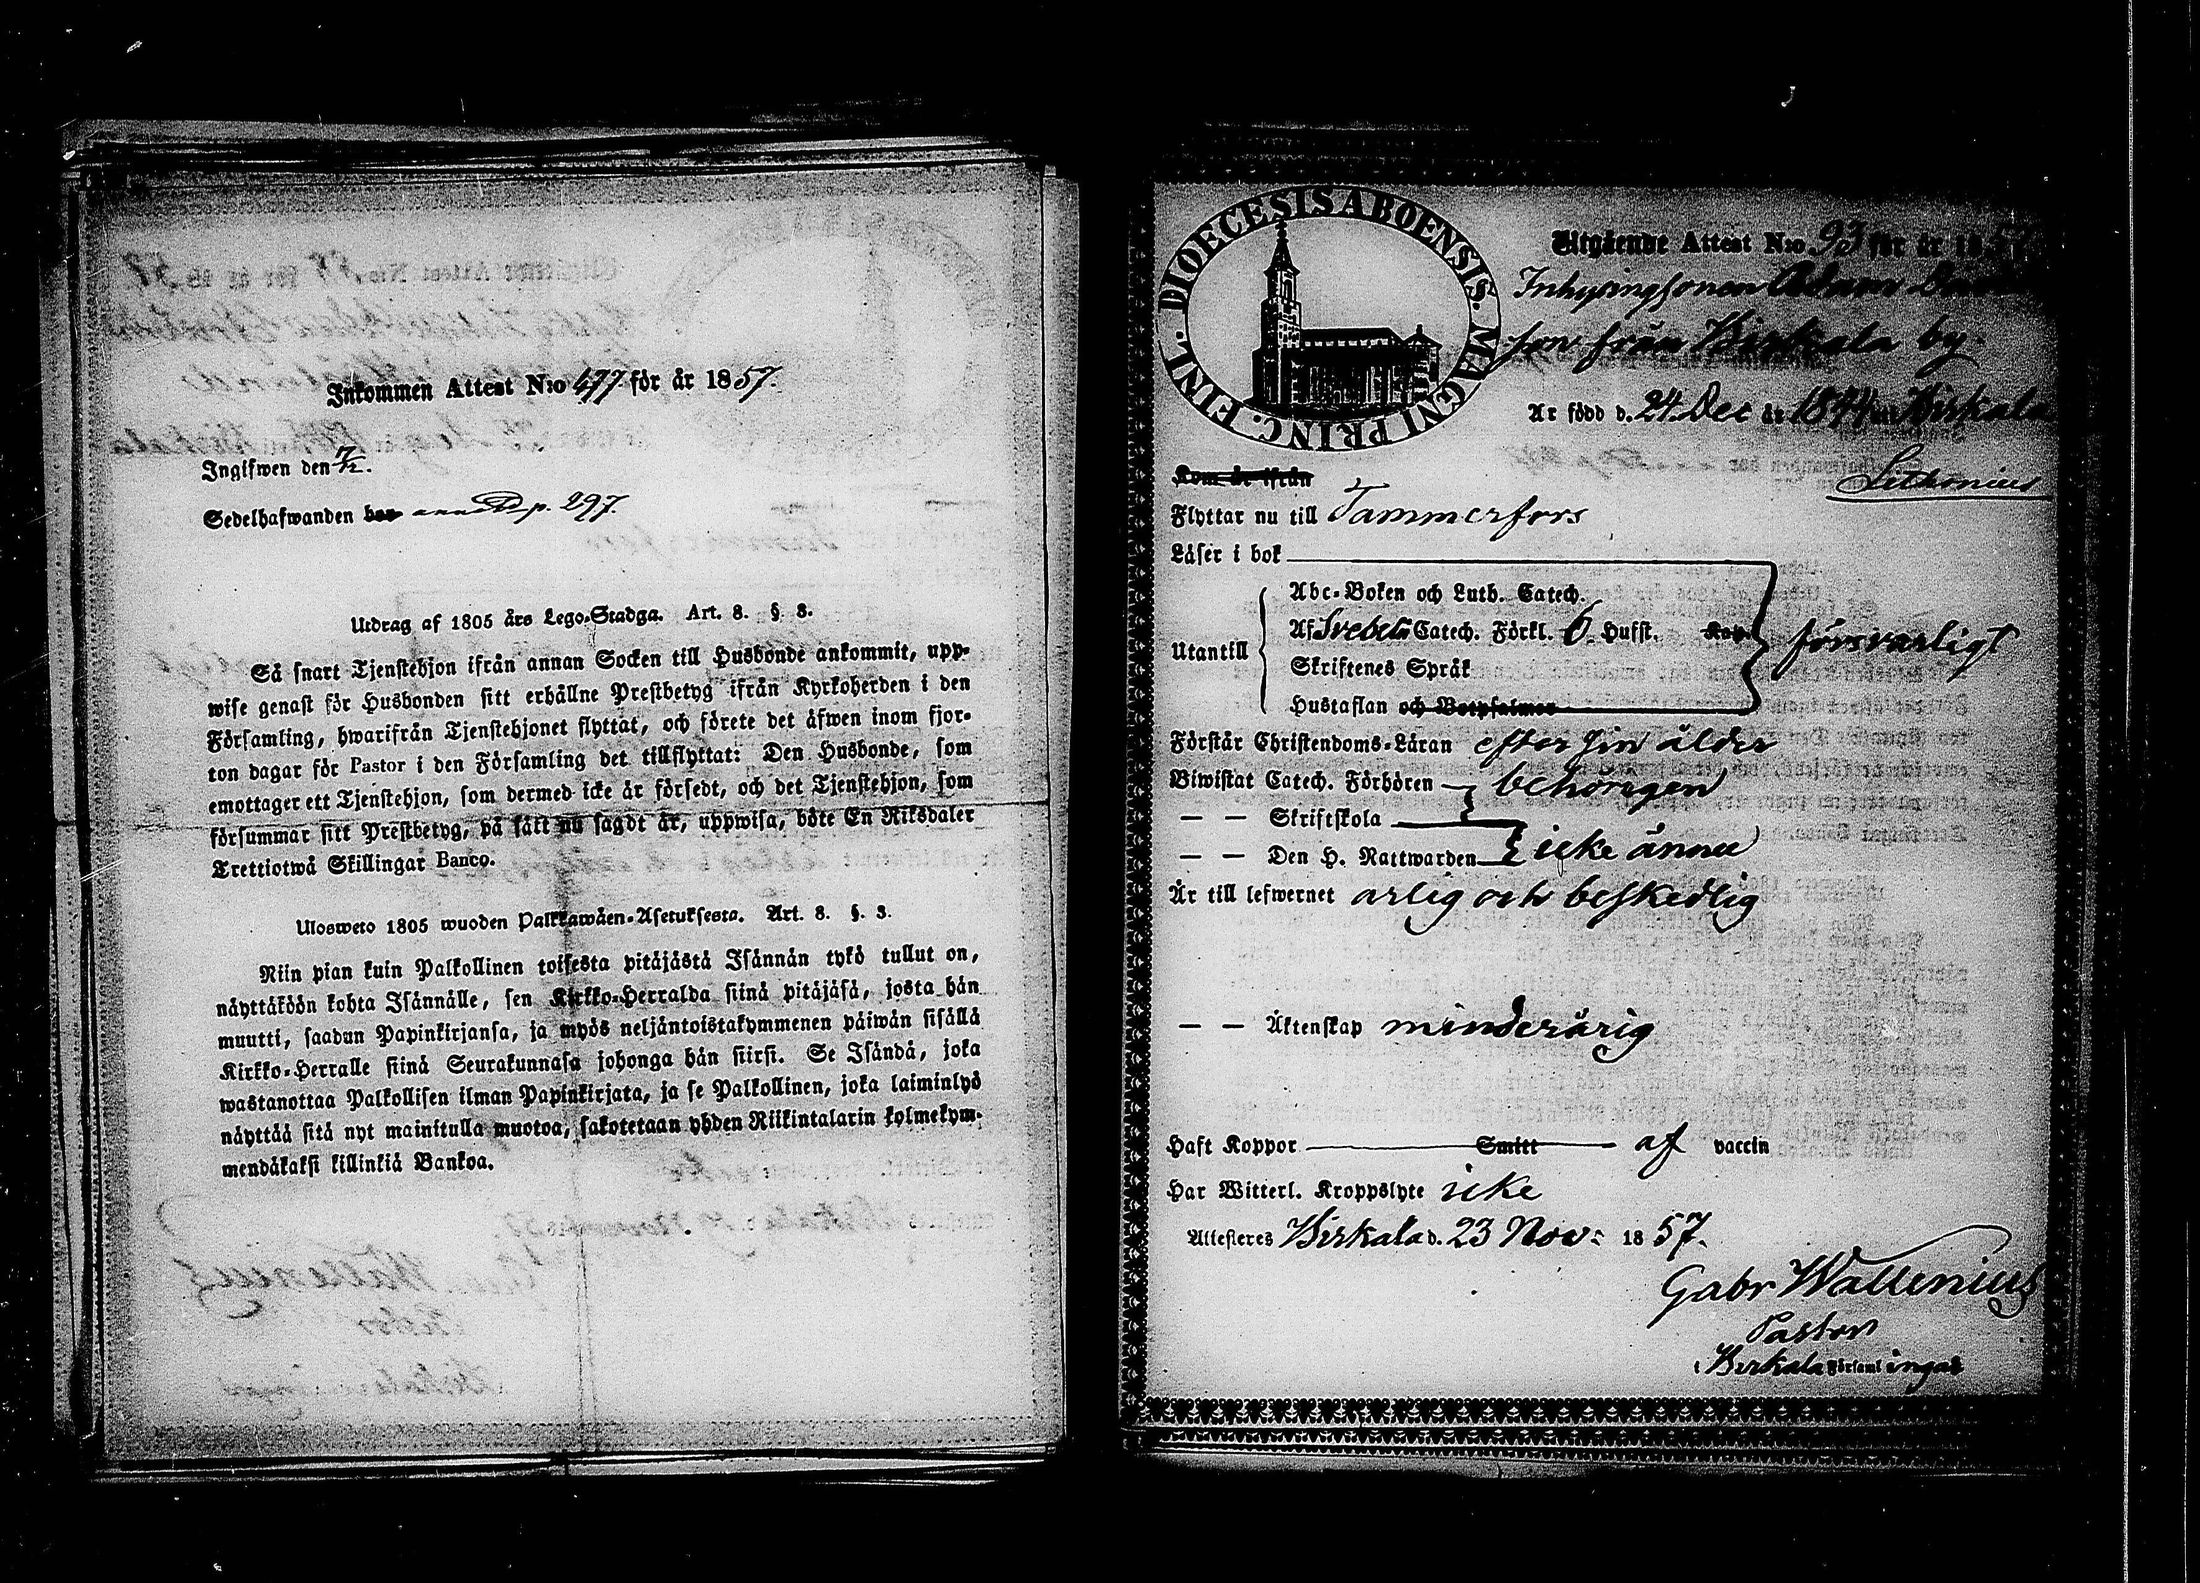 Inkommen Attest N:o 477 för år 1857.
Ingifwen den 7/12.
Sedelhafwanden har ann p. 297.
Utdrag af 1805 års Lego-Stadga. Art. 8. §. 3.
Så snart Tjenstehjon ifrån annan Socken till Husbonde ankommit, upp-
wise genast för Husbonden sitt erhållne Prestbetyg ifrån Kyrkoherden i den
Församling, hwarifrån Tjenstehjonet flyttat, och förete det äfwen inom fjor-
ton dagar för Pastor i den Församling det tillflyttat: Den Husbonde, som
emottager ett Tjenstehjon, som dermed icke är försedt, och det Tjenstehjon, som
försummar sitt Prestbetyg, på sätt nu sagdt är, uppwisa, böte En Riksdaler
Trettiotwå Skillingar Banco.
Ulosweto 1805 wuoden Palkkawäen-Asetuksesta. Art. 8. §. 3.
Niin pian kuin Palkollinen toisesta pitäjästä Isännän tykö tullut on,
näyttäköön kohta Isännälle, sen Kirkko-Herralda siinä pitäjäsä, josta hän
muutti, saadun Papinkirjansa, ja myös neljäntoistakymmenen päiwän sisällä
Kirkko-Herralle siinä Seurakunnasa johonga hän siirsi. Se Isändä, joka
wastanottaa Palkollisen ilman Papinkirjata, ja se Palkollinen, joka laiminlyö
näyttää sitä nyt mainitulla muotoa, sakotetaan yhden Riikintalarin kolmekym-
mendäkaksi killinkiä Bankoa.
DIOECESIS ABOENSIS. MAGNI PRINC. FINL.
Utgående Attest N:o 93 för år 1857
Inhysingsonen Adam
son från Birkala by.
Är född d. 24 Dec år 1844 i Birkala
Lithonius
Kom år ifrån
Flyttar nu till Tammerfors
Läser i bok
Abc-Boken och Luth. Catech.
Utantill Af Svebeli Catech. Förkl. 6 Hufst. Kap. försvarligt
Skriftenes Språk
Hustaflan och Botpsalmer
Förstår Christendoms-Läran efter sin ålder
Biwistat Catech. Förhören behörigen
— — Skriftskola
— — Den H. Nattwarden icke ännu
Är till lefwernet ärlig och beskedlig
— — Äktenskap minderårig
Haft Koppor Smitt af vaccin
Har Witterl. Kroppslyte icke
Attesteres Birkala d. 23 Nov: 1857.
Gabr Wallenius
Pastor
i Birkala Församlingar